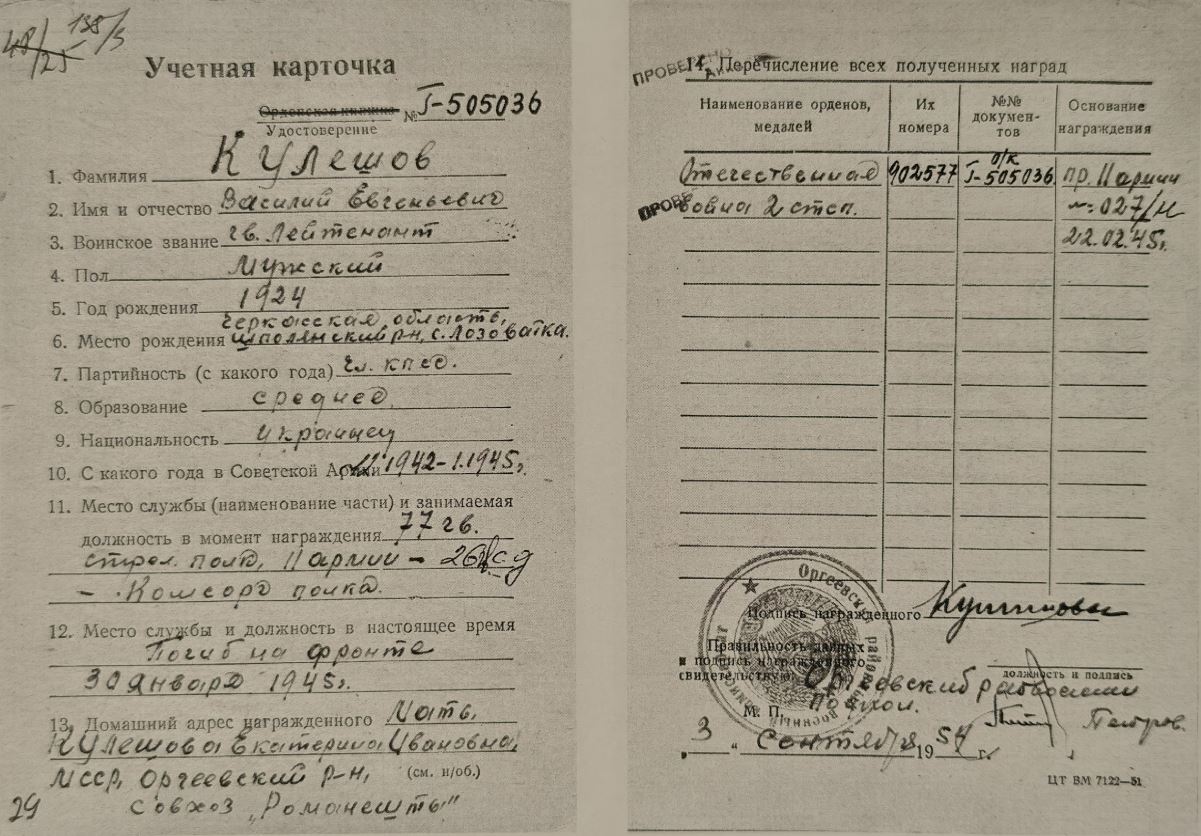 48/25 138/5
Учетная карточка
Орденская книжка № Г-505036
Удостоверение
1. Фамилия Кулешов
2. Имя и отчество Василий Евгеньевич
3. Воинское звание гв. Лейтенант
4. Пол Мужский
5. Год рождения 1924
Черкасская область,
6. Место рождения Шполянский р-н, с. Лозоватка.
7. Партийность (с какого года) чл. КПСС.
8. Образование среднее
9. Национальность украинец
10. С какого года в Советской Армии 1942-1.1945г.
11. Место службы (наименование части) и занимаемая
должность в момент награждения 77 гв.
стрел. полк, Армии - 26 сд
- Комсорг полка.
12. Место службы и должность в настоящее время
Погиб на фронте
30 января 1945г.
13. Домашний адрес награжденного Мать,
Кулешова Екатерина Ивановна,
МССР, Оргеевский р-н, (см. н/об.)
совхоз „Романешты"
29
ПРОВЕРЕНО
14. Перечисление всех полученных наград
Наименование орденов, медалей
Их номера
№№ документов
Основание награждения
Отечественная 902577 о/к Г-505036 пр. Армии
война 2 степ. №: 027/н
22.02.45г.
ПРОВЕ
Подпись награжденного Кулешова
Правильность данных
и подпись награжденного
свидетельствую
должность и подпись
Оргеевский райвоенком
Петров.
М. П.
„3" сентября 1954 г.
Оргеевский районный военный комиссариат
ЦТ ВМ 7122—51